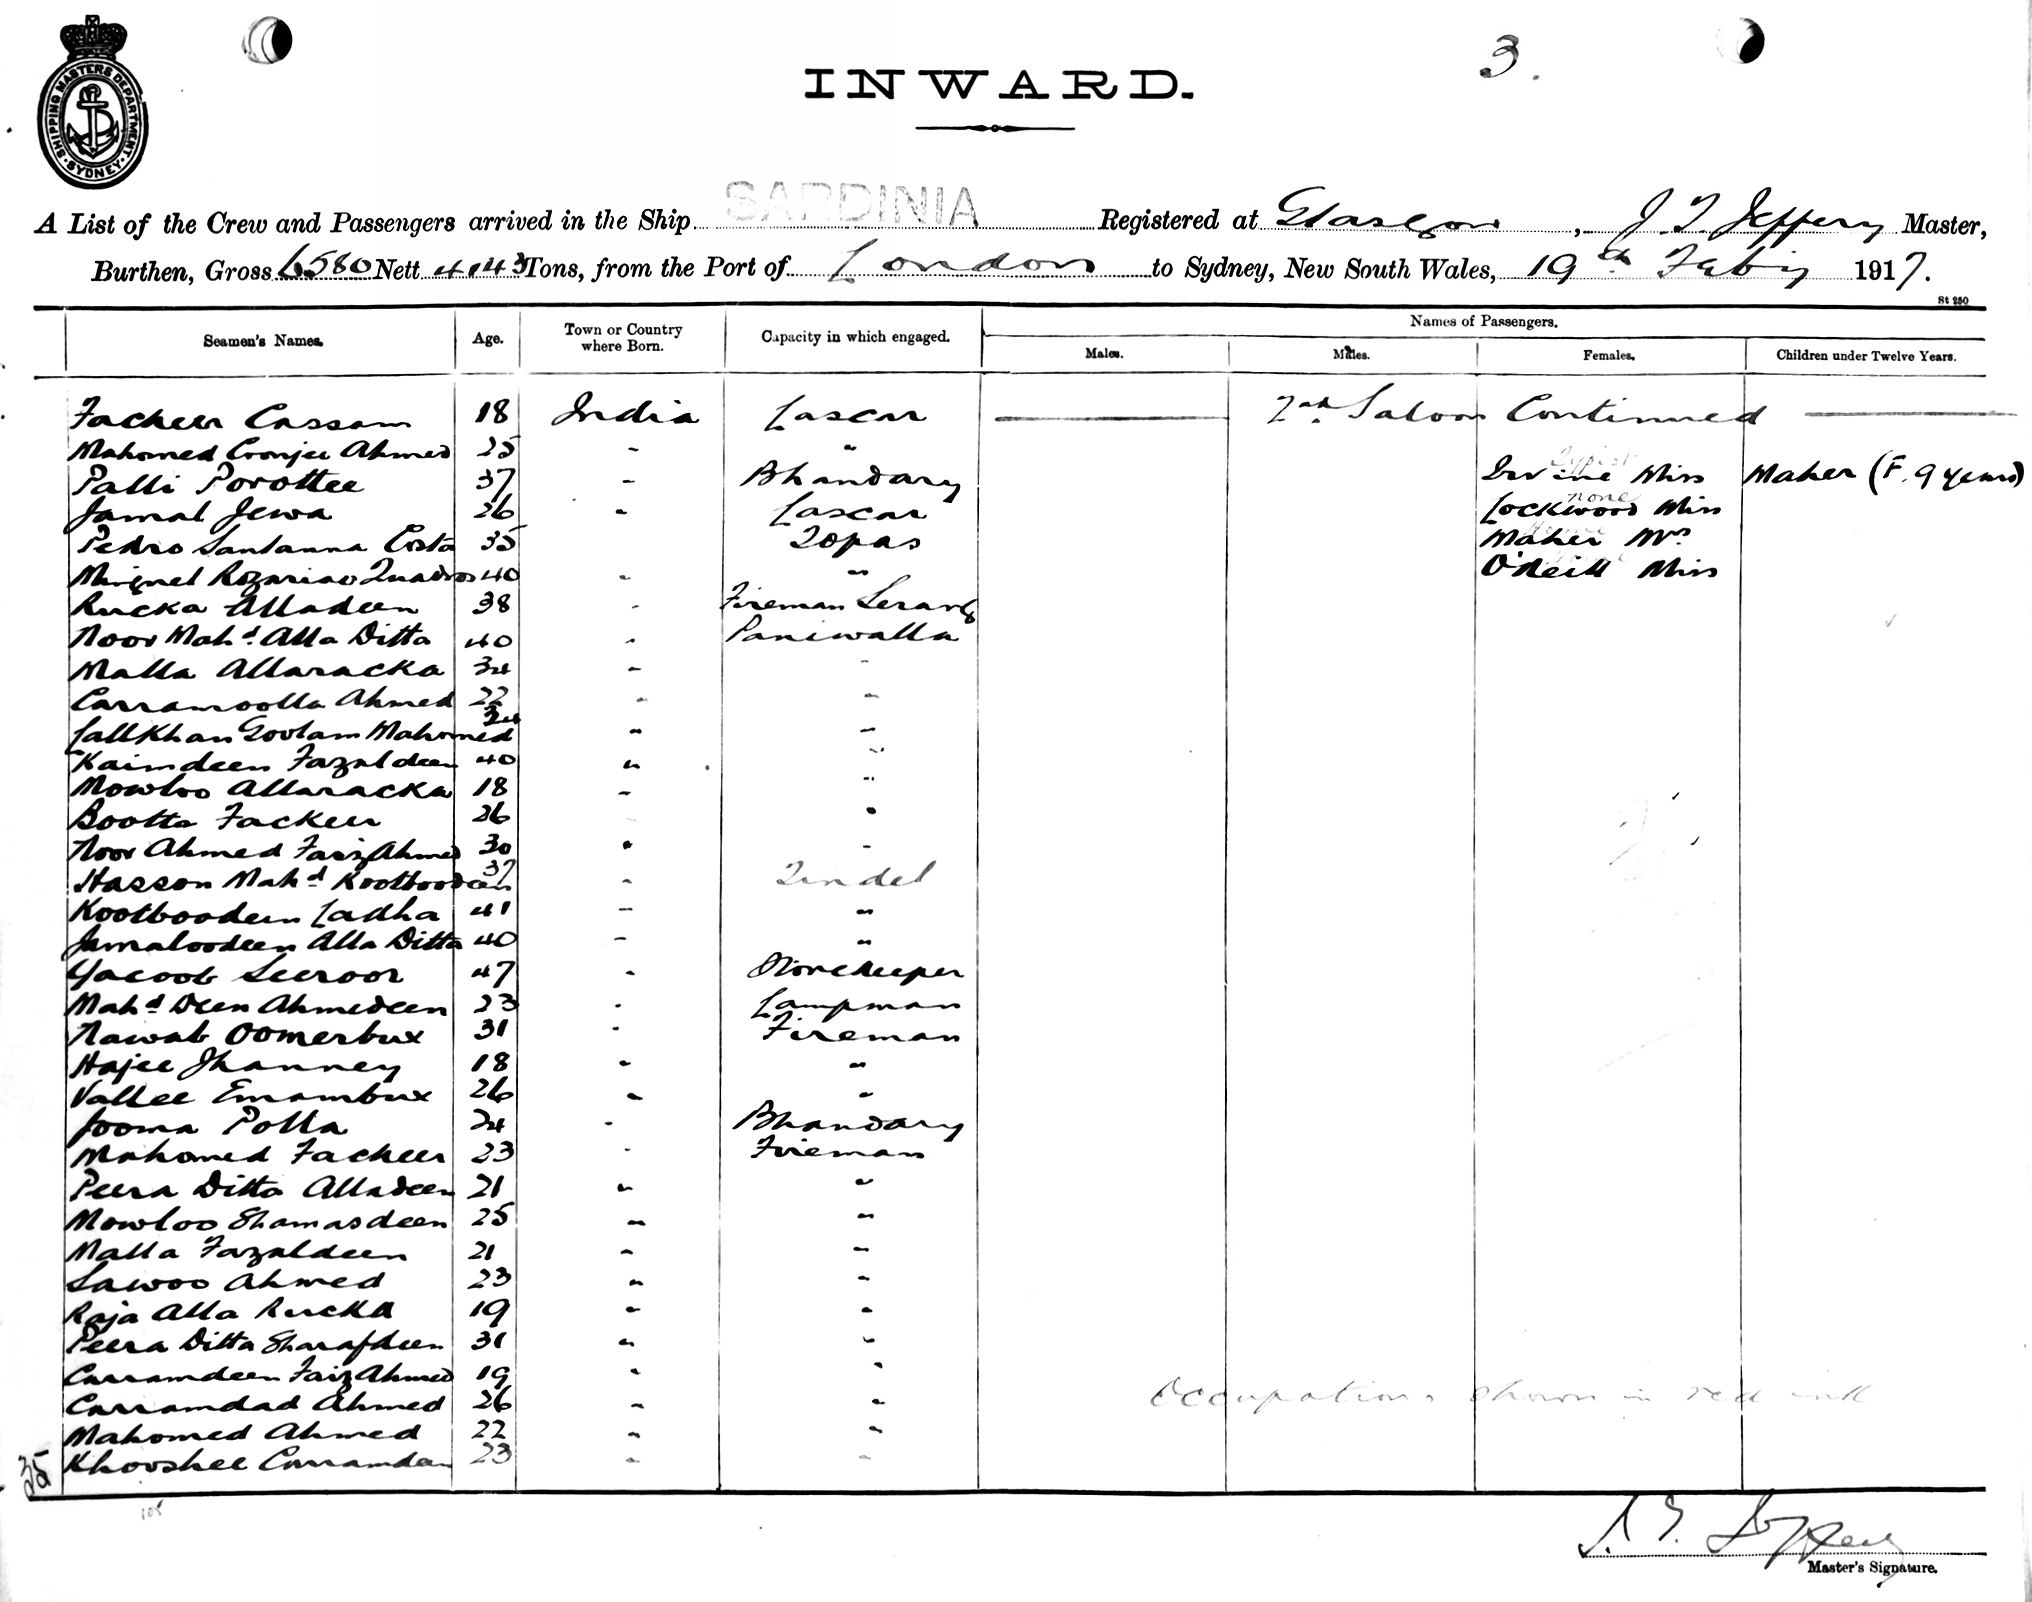 3.
SHIPPING MASTERS DEPARTMENT
SYDNEY
INWARD.
A List of the Crew and Passengers arrived in the Ship SARDINIA Registered at Glasgow, J T Jeffery Master,
Burthen, Gross 6580 Nett 4143 Tons, from the Port of London to Sydney, New South Wales, 19th Feby 1917.
St 250
Seamen's Names. Age. Town or Country where Born. Capacity in which engaged. Names of Passengers.
Males. Males. Females. Children under Twelve Years.
Facheer Cassam 18 India Lascar 2nd Saloon Continued
Mahomed Coonjee Ahmed 25 " "
Palli Porottee 37 " Bhandary Irvine Miss Typist Maher (F. 9 years)
Jamal Jewa 26 " Lascar Lockwood Miss none
Pedro Santanna Costa 35 Topas Maher Mrs
Miguel Rozariao Quadros 40 " " O'Neill Miss
Rucka Alladeen 38 " Fireman Serang
Noor Mahd. Alla Ditta 40 " Paniwalla
Malla Allaracka 34 " "
Carramoolla Ahmed 22 " "
Lallkhan Goolam Mahomed 34 " "
Kaimdeen Fazaldeen 40 " "
Mowloo Allaracka 18 " "
Bootta Fackeer 26 "
Noor Ahmed Faiz Ahmed 30 " "
Hasson Mahd Kootboodeen 37 " Tindel
Kootboodeen Ladha 41 " "
Jamaloodeen Alla Ditta 40 " "
Yacoob Seeroor 47 " Storekeeper
Mahd Deen Ahmedeen 23 " Lampman
Nawab Oomerbux 31 " Fireman
Hajee Jhanney 18 " "
Vallee Emambux 26 " "
Jooma Polla 24 " Bhandary
Mahomed Facheer 23 " Fireman
Peera Ditta Alladeen 21 " "
Mowloo Shamasdeen 25 " "
Malla Fazaldeen 21 " "
Sawoo Ahmed 23 " "
Raja Alla Rucka 19 " "
Peera Ditta Sharafdeen 31 " "
Carramdeen Faiz Ahmed 19 " "
Carramdad Ahmed 26 " "
Occupations shown in red ink
Mahomed Ahmed 22 " "
Khooshee Carramdeen 23 " "
35
105
J. T. Jeffery
Master's Signature.